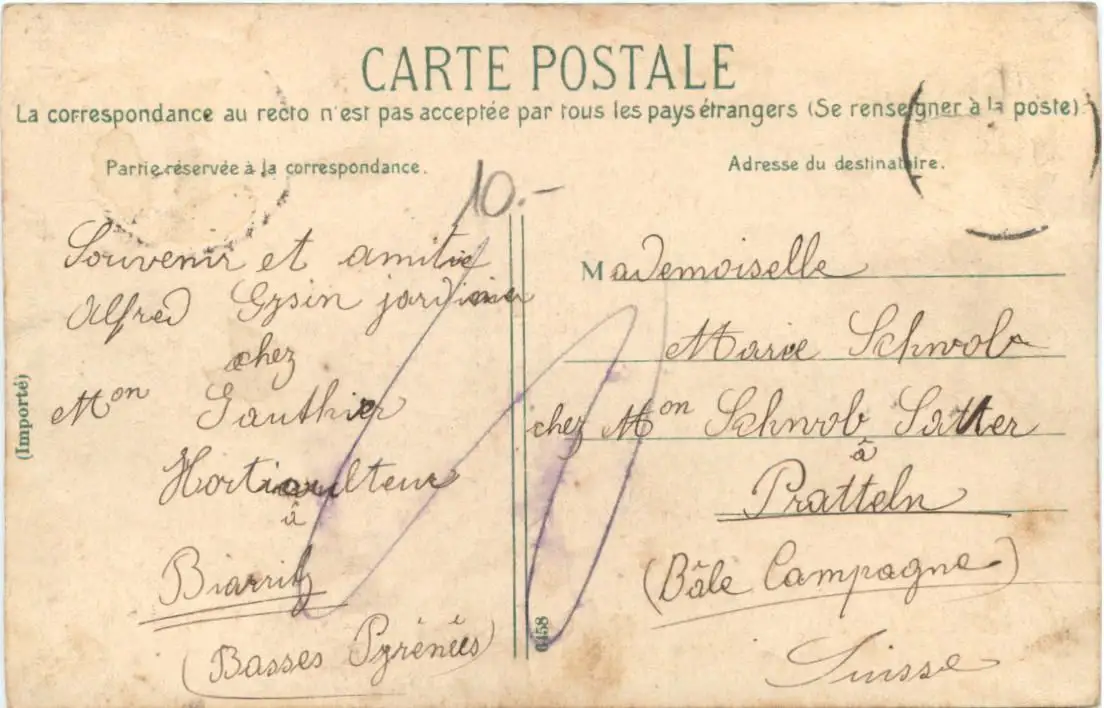 CARTE POSTALE
La correspondance au recto n'est pas acceptée par tous les pays étrangers (Se renseigner à la poste)
Partie réservée à la correspondance.
Adresse du destinataire.
10.-
Souvenir et amitié
Alfred Gysin jardinier
chez
Mon Gauthier
Horticulteur
à
Biarritz
(Basses Pyrénées)
(Importé)
6458
Mademoiselle
Marie Schwob
chez Mon Schwob Sutter
à
Pratteln
(Bâle Campagne)
Suisse